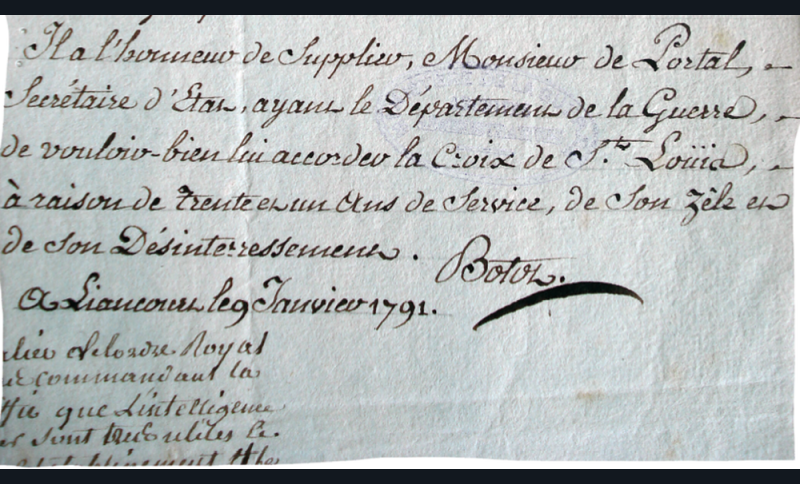 Il a l'honneur de Supplier, Monsieur de Portal,
Secrétaire d'Etat, ayant le Département de la Guerre,
de vouloir-bien lui accorder la Croix de S.t Loüis,
à raison de trente et un Ans de Service, de Son zêle et
de Son Désinterressement.
Botot.
A Liancourt le 9 Janvier 1791.
de l'ordre Royal
commandant la
que L'intelligence
Sont